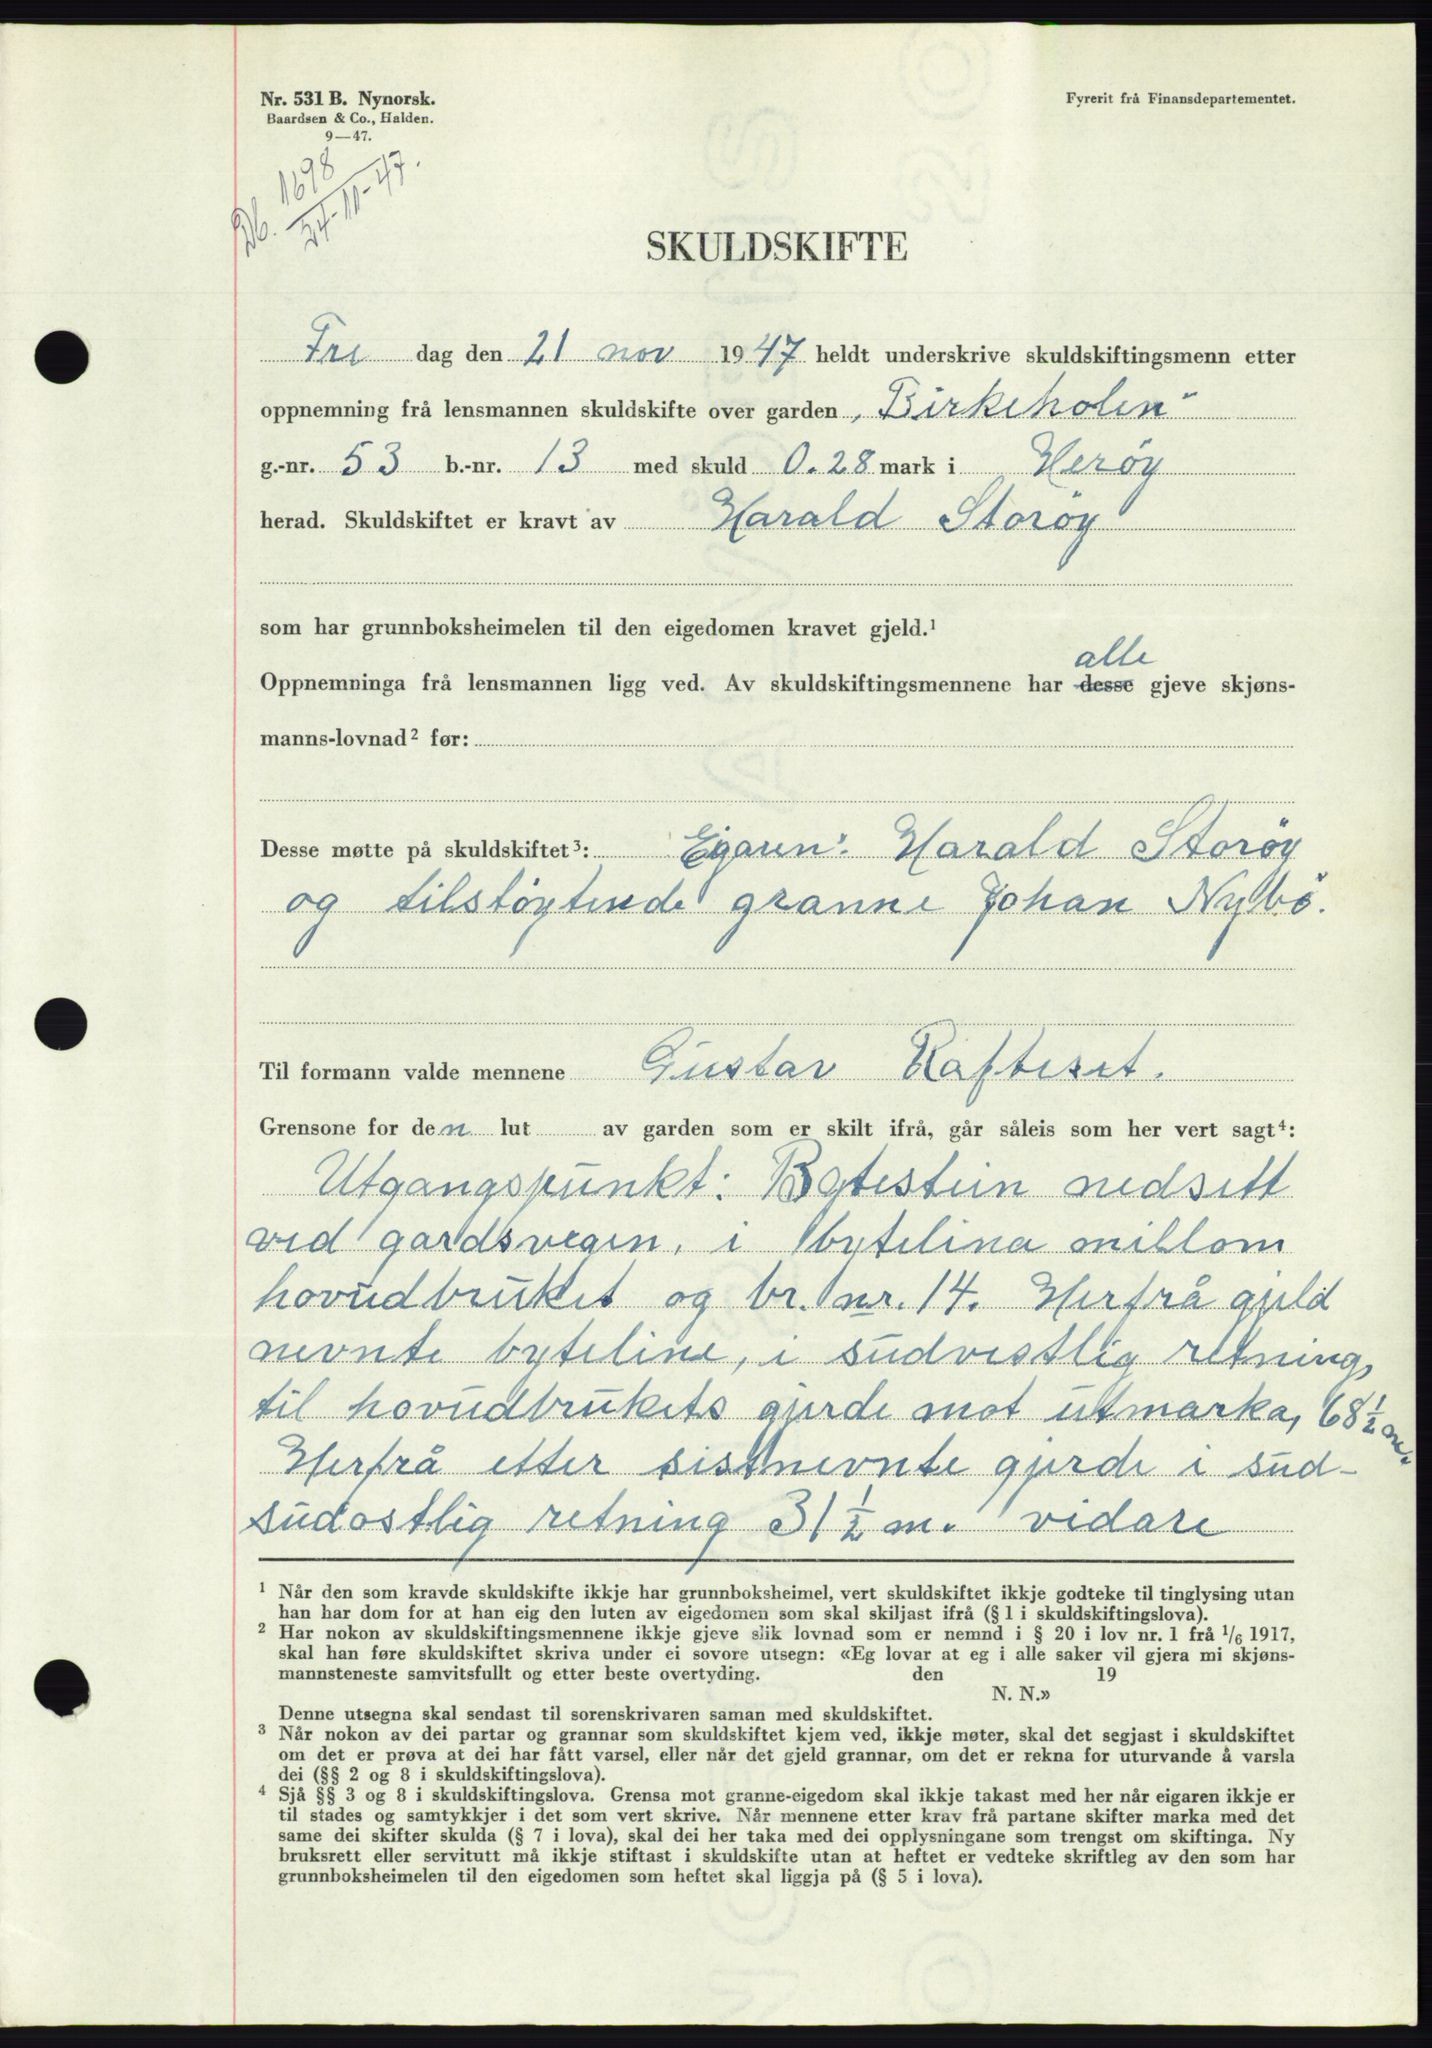 Nr. 531 B. Nynorsk.
Baardsen & Co., Halden.
9—47.
Fyrerit frå Finansdepartementet.
Db. 1698
24-11-47.
SKULDSKIFTE
Fre dag den 21 nov 1947 heldt underskrive skuldskiftingsmenn etter
oppnemning frå lensmannen skuldskifte over garden „Birkeholen"
g.-nr. 53 b.-nr. 13 med skuld 0.28 mark i Herøy
herad. Skuldskiftet er kravt av Harald Storøy
som har grunnboksheimelen til den eigedomen kravet gjeld.¹
alle
Oppnemninga frå lensmannen ligg ved. Av skuldskiftingsmennene har desse gjeve skjøns-
manns-lovnad² før:
Desse møtte på skuldskiftet³: Eigaren: Harald Storøy
og tilstøytende granne Johan Nybö.
Til formann valde mennene Gustav Rafteset.
Grensone for den lut av garden som er skilt ifrå, går såleis som her vert sagt⁴:
Utgangspunkt: Bytestein nedsett
ved gardsvegen, i bytelina millom
hovudbruket og br. nr. 14. Herfrå gjeld
nevnte byteline, i sudvestlig retning,
til hovudbrukets gjerde mot utmarka, 68 ½ m.
Herfrå etter sistnevnte gjerde i sud-
sudostlig retning 31 ½ m. vidare
¹ Når den som kravde skuldskifte ikkje har grunnboksheimel, vert skuldskiftet ikkje godteke til tinglysing utan
han har dom for at han eig den luten av eigedomen som skal skiljast ifrå (§ 1 i skuldskiftingslova).
² Har nokon av skuldskiftingsmennene ikkje gjeve slik lovnad som er nemnd i § 20 i lov nr. 1 frå 1/6 1917,
skal han føre skuldskiftet skriva under ei sovore utsegn: «Eg lovar at eg i alle saker vil gjera mi skjøns-
mannsteneste samvitsfullt og etter beste overtyding. den 19
N. N.»
Denne utsegna skal sendast til sorenskrivaren saman med skuldskiftet.
³ Når nokon av dei partar og grannar som skuldskiftet kjem ved, ikkje møter, skal det segjast i skuldskiftet
om det er prøva at dei har fått varsel, eller når det gjeld grannar, om det er rekna for uturvande å varsla
dei (§§ 2 og 8 i skuldskiftingslova).
⁴ Sjå §§ 3 og 8 i skuldskiftingslova. Grensa mot granne-eigedom skal ikkje takast med her når eigaren ikkje er
til stades og samtykkjer i det som vert skrive. Når mennene etter krav frå partane skifter marka med det
same dei skifter skulda (§ 7 i lova), skal dei her taka med dei opplysningane som trengst om skiftinga. Ny
bruksrett eller servitutt må ikkje stiftast i skuldskifte utan at heftet er vedteke skriftleg av den som har
grunnboksheimelen til den eigedomen som heftet skal liggja på (§ 5 i lova).